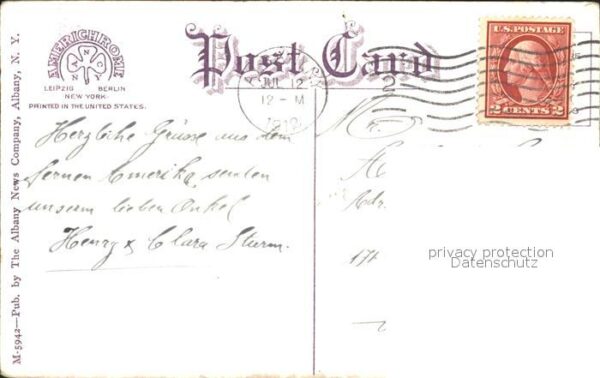 AMERICHROME
A N N Co
LEIPZIG BERLIN
NEW YORK
PRINTED IN THE UNITED STATES.
Post Card
JUL 12
12-M
U.S. POSTAGE
2 CENTS 2
Herzliche Grüsse aus dem
fernen Amerika, senden
unserm lieben Onkel
Henry & Clara Sturm.
M-5942—Pub. by The Albany News Company, Albany, N. Y.
privacy protection
Datenschutz